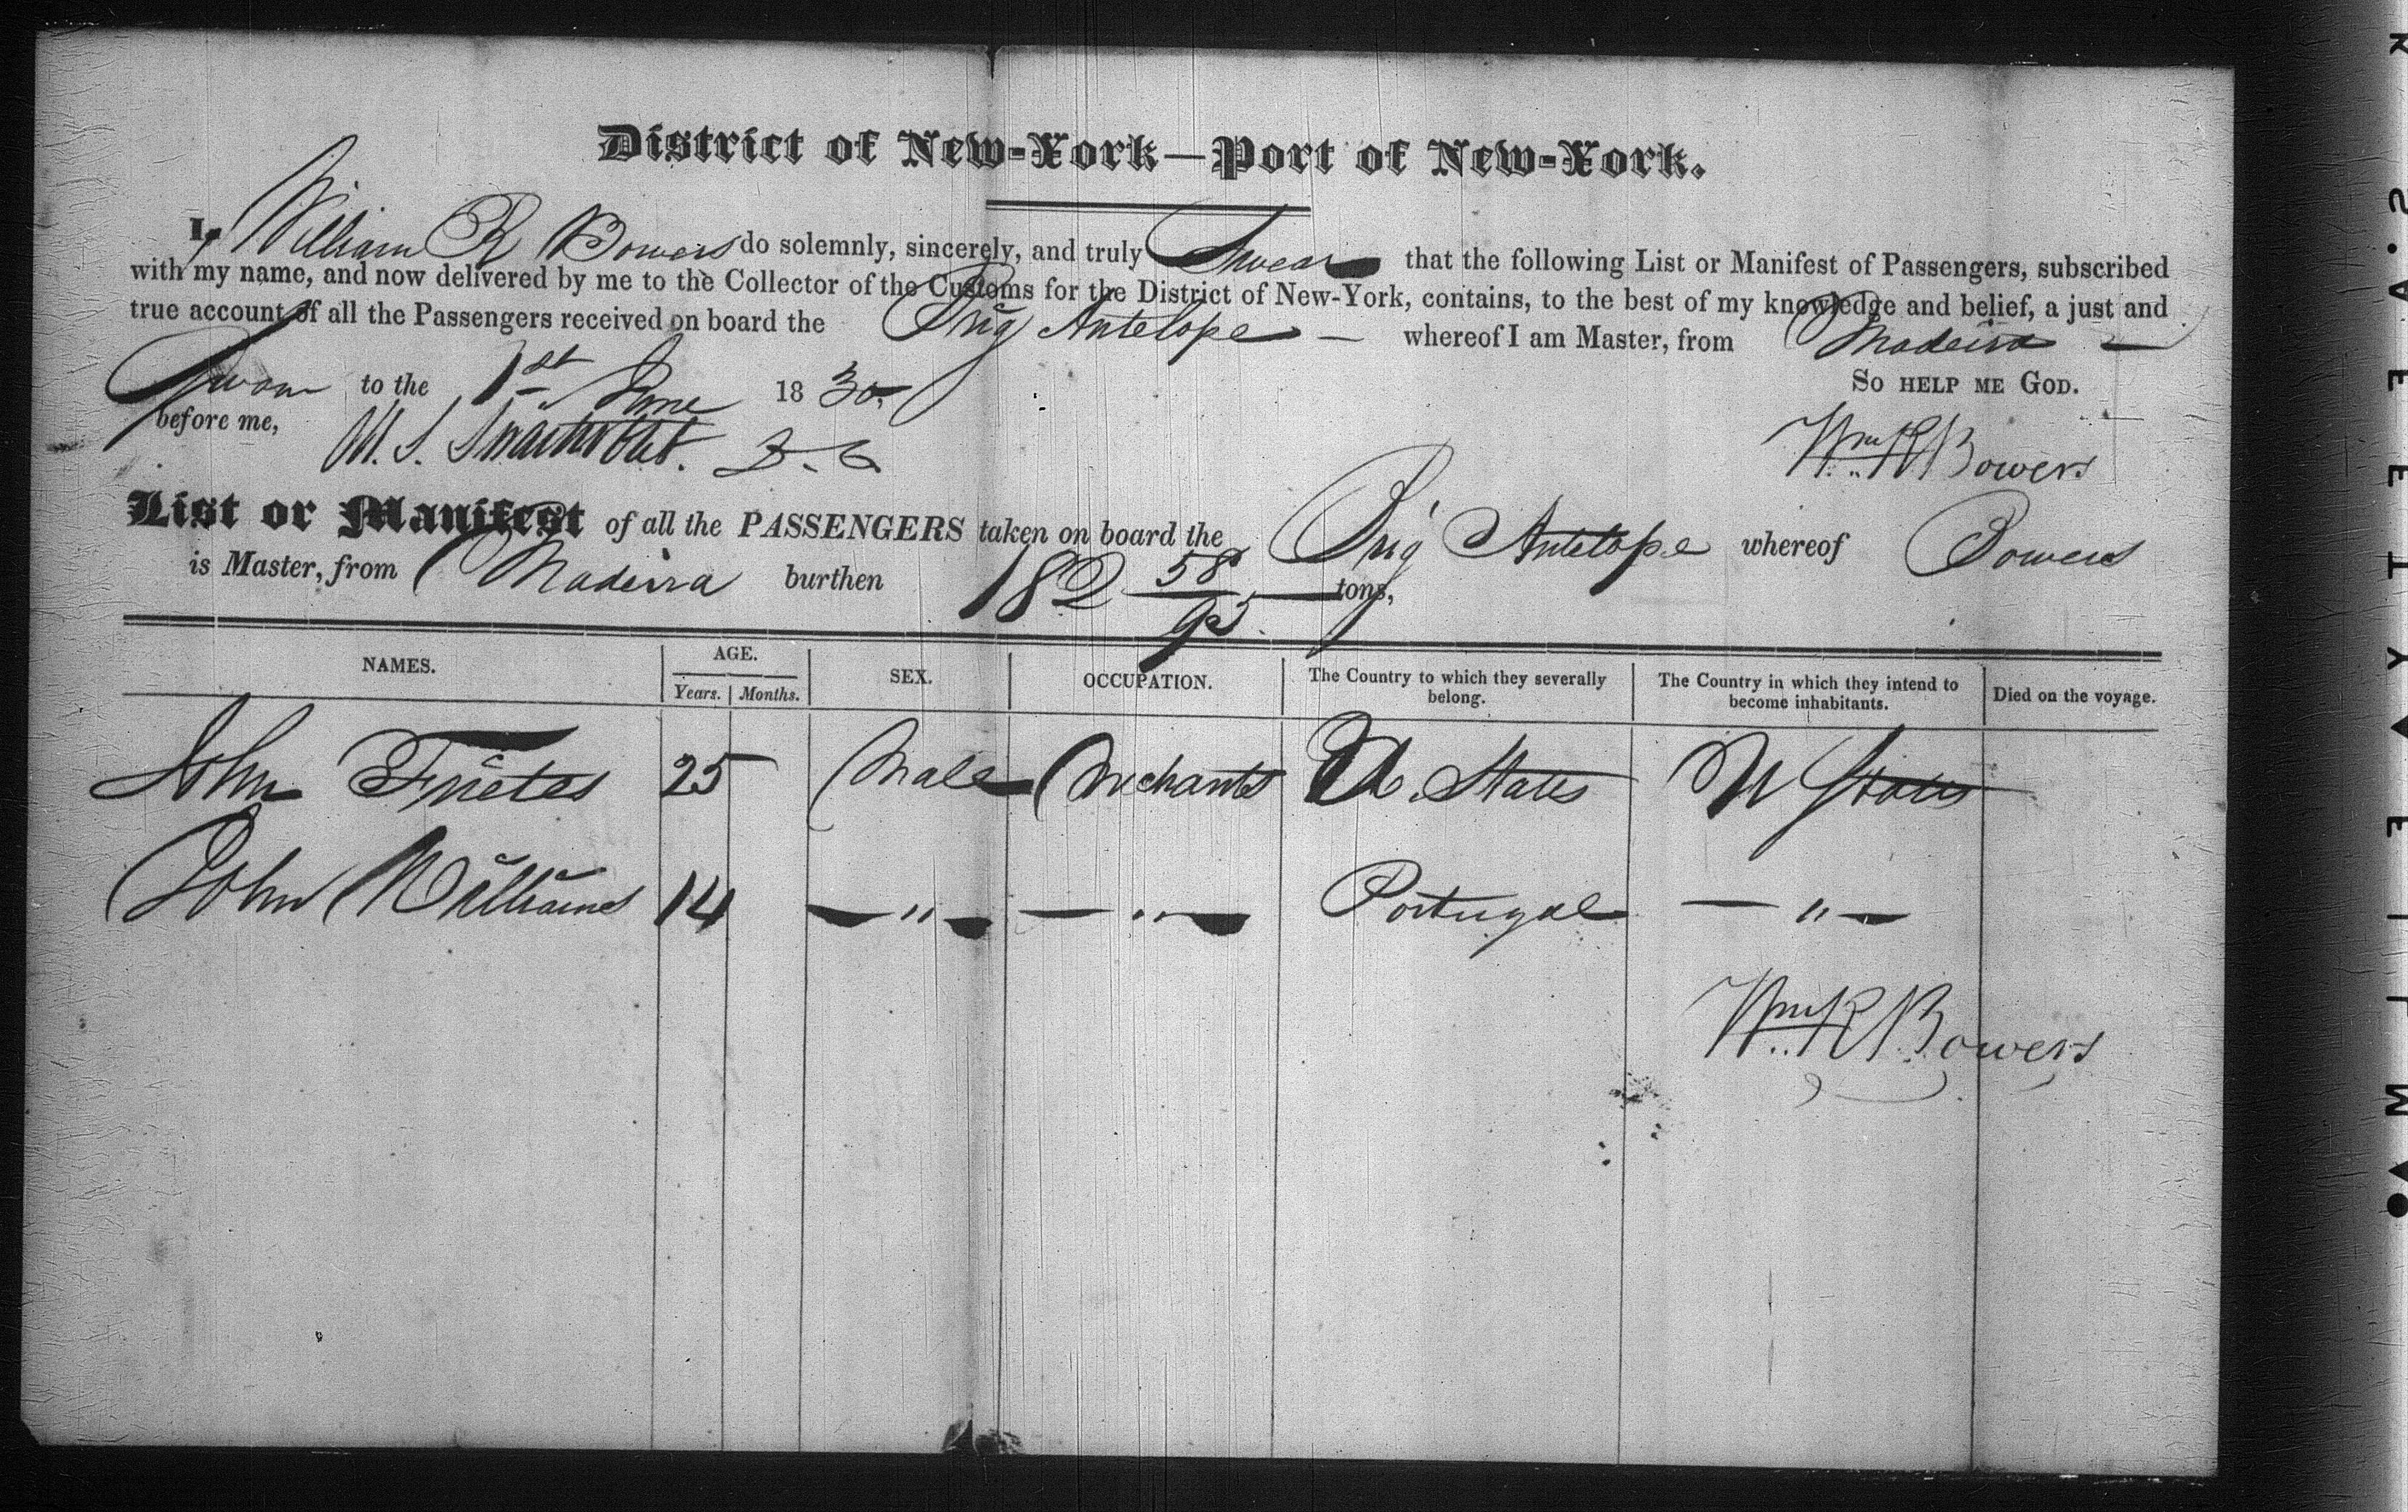 District of New-York—Port of New-York.
I, William R Bowers do solemnly, sincerely, and truly Swear that the following List or Manifest of Passengers, subscribed
with my name, and now delivered by me to the Collector of the Customs for the District of New-York, contains, to the best of my knowledge and belief, a just and
true account of all the Passengers received on board the Brig Antelope — whereof I am Master, from Madeira —
Sworn to the 1st June 1830, So help me God.
before me, Wm R Bowers
List or Manifest of all the PASSENGERS taken on board the Brig Antelope whereof Bowers
is Master, from Madeira burthen 182 58/95 tons,
NAMES. AGE. Years. Months. SEX. OCCUPATION. The Country to which they severally belong. The Country in which they intend to become inhabitants. Died on the voyage.
John 25 Male Mechants U. States U States
John Williams 14 — " — — " — Portugal — " —
Wm R Bowers